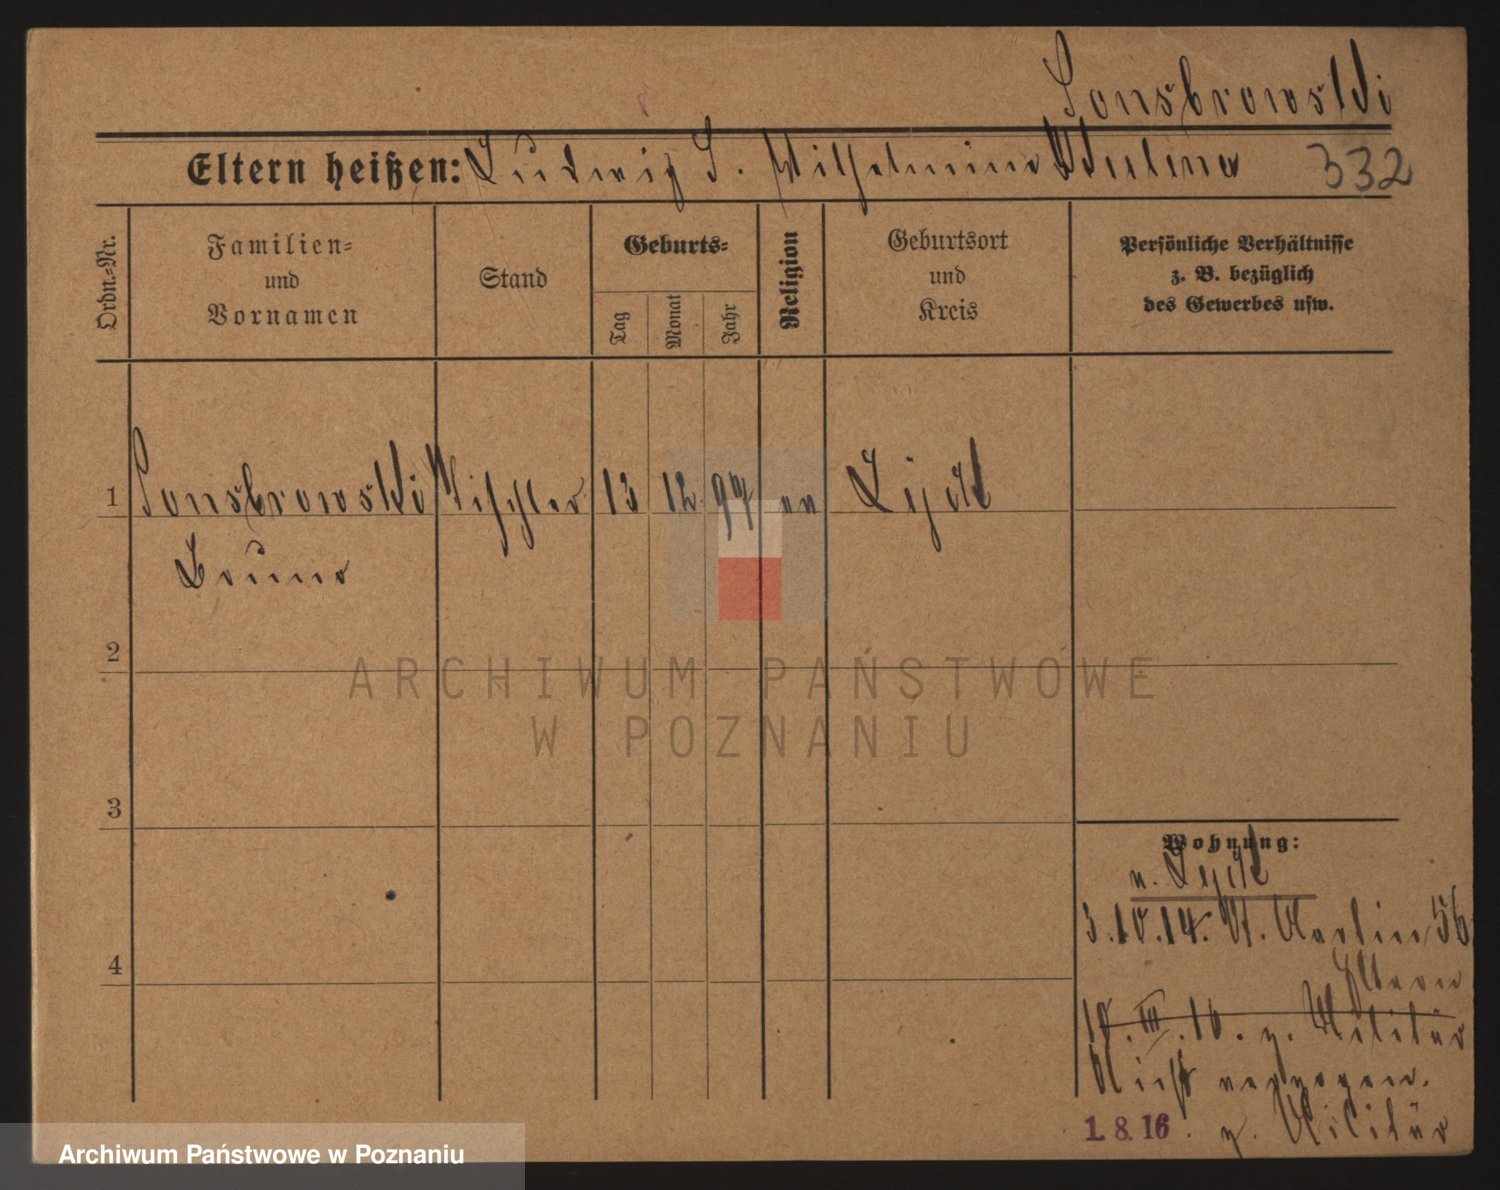 Sonsbrowski
Eltern heißen: Ludwig S. Wilhelmine
332
Ordn.-Nr.
Familien-
und
Vornamen
Stand
Geburts-
Tag
Monat
Jahr
Religion
Geburtsort
und
Kreis
Persönliche Verhältnisse
z. B. bezüglich
des Gewerbes usw.
1 Sonsbrowski Tischler 13 12 97 ev
Bruno
2
3
4
Wohnung:
3.10.14. St. Martin 56
Eltern
10.III.16. z. Militär
Nicht verzogen.
1. 8. 16 z. Militär
ARCHIWUM PAŃSTWOWE
W POZNANIU
Archiwum Państwowe w Poznaniu